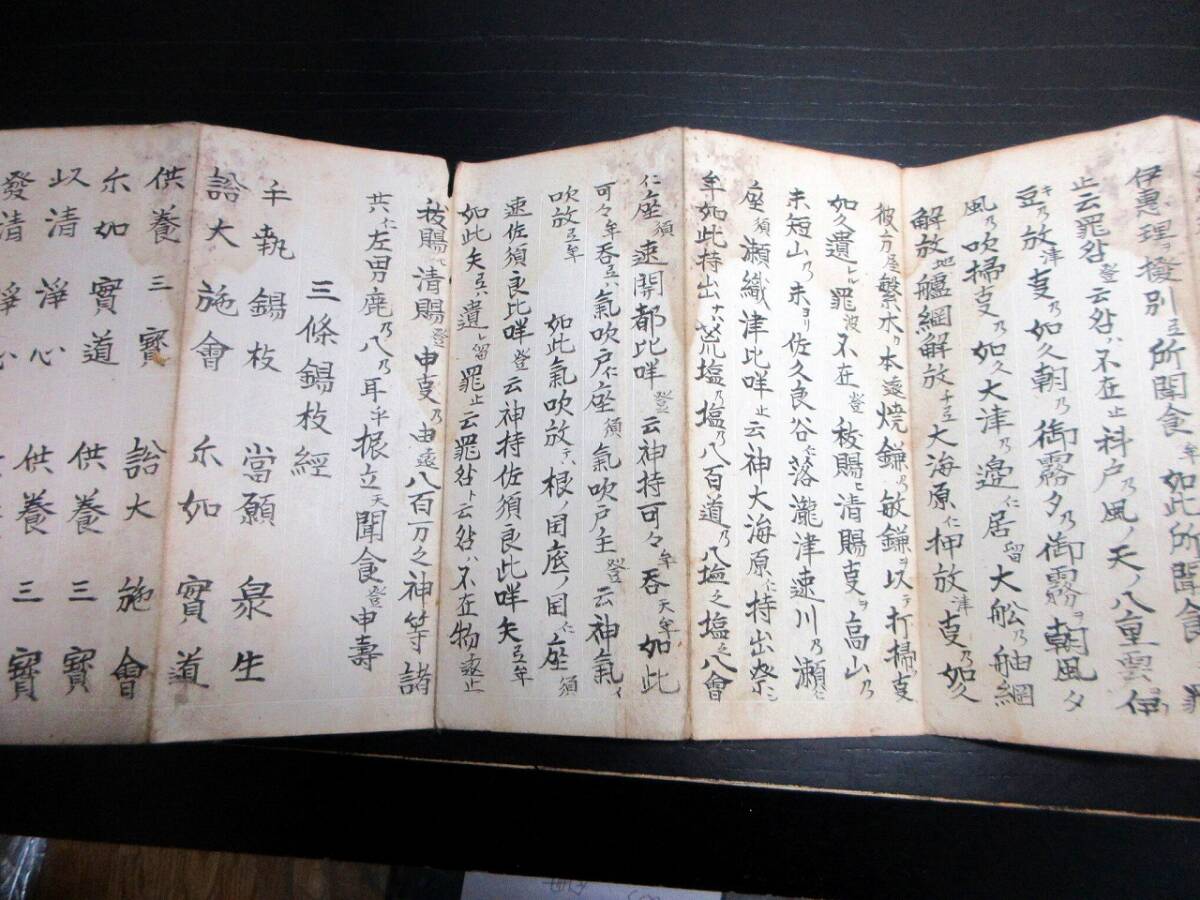 伊惠理ヲ撥別弖所聞食牟如此所聞食
止云罪咎登云咎ハ不在止科戸乃風ノ天ノ八重雲
豆乃放津叓乃如久朝乃御霧夕乃御霧ヲ朝風夕
風乃吹掃叓乃如久大津乃邊仁居留大舩乃舳綱
解放地艫綱解放チ弖大海原仁押放津叓乃如久
彼方座繁木ノ本遠焼鎌ノ敏鎌ヲ以テ打掃叓
如久遺レル罪波不在登秡賜ヒ清賜叓ヲ高山乃
末短山乃末ヨリ佐久良谷仁落瀧津速川乃瀬仁
座須瀬織津比咩止云神大海原仁持出祭ニ
牟如此持出ナハ荒塩乃塩乃八百道乃八塩之塩之八會
仁座須速開都比咩登云神持可々牟呑天牟如此
可々牟呑弖ハ氣吹戸仁座須氣吹戸主登云神氣イ
吹放弖牟如此氣吹放テハ根ノ国底ノ国仁座須
速佐須良比咩登云神持佐須良比咩矢弖牟
如此矢弖ハ遺レ留罪止云罪咎ト云咎ハ不在物遠止
秡賜ヒ清賜登申叓乃由遠八百万之神等諸
共仁左男鹿乃八乃耳乎振立天聞食登申壽
三條錫杖經
手執錫杖 當願衆生
設大施會 示如實道
供養三寳 設大施會
示如實道 供養三寳
以清淨心 供養三寳
發清淨心 供養三寳